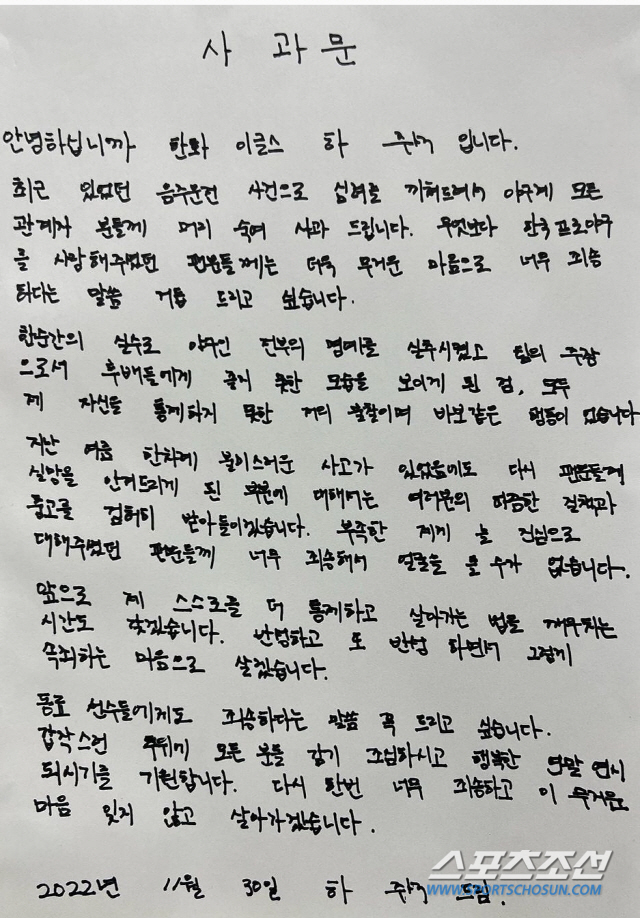 사 과 문
안녕하십니까 한화 이글스 하 주석 입니다.
최근 있었던 음주운전 사건으로 심려를 끼쳐드려서 야구계 모든
관계자 분들께 머리 숙여 사과 드립니다. 무엇보다 한국 프로야구
를 사랑해주셨던 팬분들께는 더욱 무거운 마음으로 너무 죄송
하다는 말씀 거듭 드리고 싶습니다.
한순간의 실수로 야구인 전부의 명예를 실추시켰고 팀의 주장
으로서 후배들에게 좋지 못한 모습을 보이게 된 점, 모두
제 자신을 통제하지 못한 저의 불찰이며 바보같은 행동이 었습니다
지난 여름 한차례 불미스러운 사고가 있었음에도 다시 팬분들께
실망을 안겨드리게 된 부분에 대해서는 여러분의 따끔한 질책과
충고를 겸허히 받아들이겠습니다. 부족한 제게 늘 진심으로
대해주셨던 팬분들께 너무 죄송해서 얼굴을 들 수가 없습니다.
앞으로 제 스스로를 더 통제하고 살아가는 법을 깨우치는
시간도 갖겠습니다. 반성하고 또 반성 하면서 그렇게
속죄하는 마음으로 살겠습니다.
동료 선수들에게도 죄송하다는 말씀 꼭 드리고 싶습니다.
갑작스런 추위에 모든 분들 감기 조심하시고 행복한 연말 연시
되시기를 기원합니다. 다시 한번 너무 죄송하고 이 무거운
마음 잊지 않고 살아가겠습니다.
2022년 11월 30일 하 주석 드림.
스포츠조선
WWW.SPORTSCHOSUN.COM